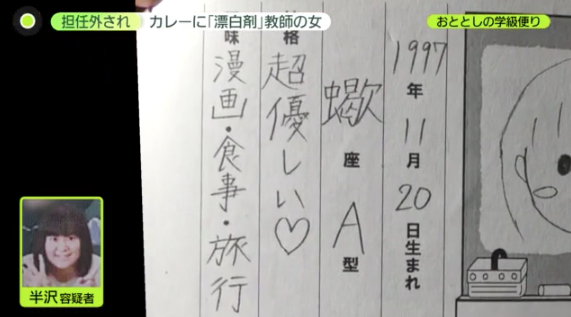 担任外され カレーに「漂白剤」教師の女
おととしの学級便り
1997年11月20日生まれ
蠍座 A型
性格 超優しい♡
趣味 漫画・食事・旅行
半沢容疑者